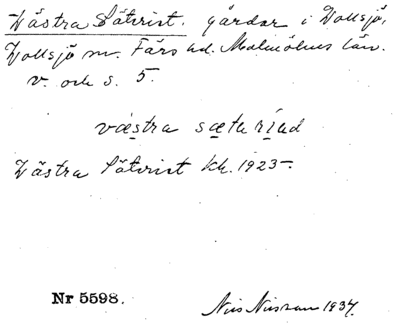 Västra Sätvrist. gårdar i Vollsjö,
Vollsjö sn. Färs hd. Malmöhus län.
v. och s. 5.
væstra sætariad
Västra Sätvrist kk. 1923-
Nr 5598.
Nils Nilsson 1937.